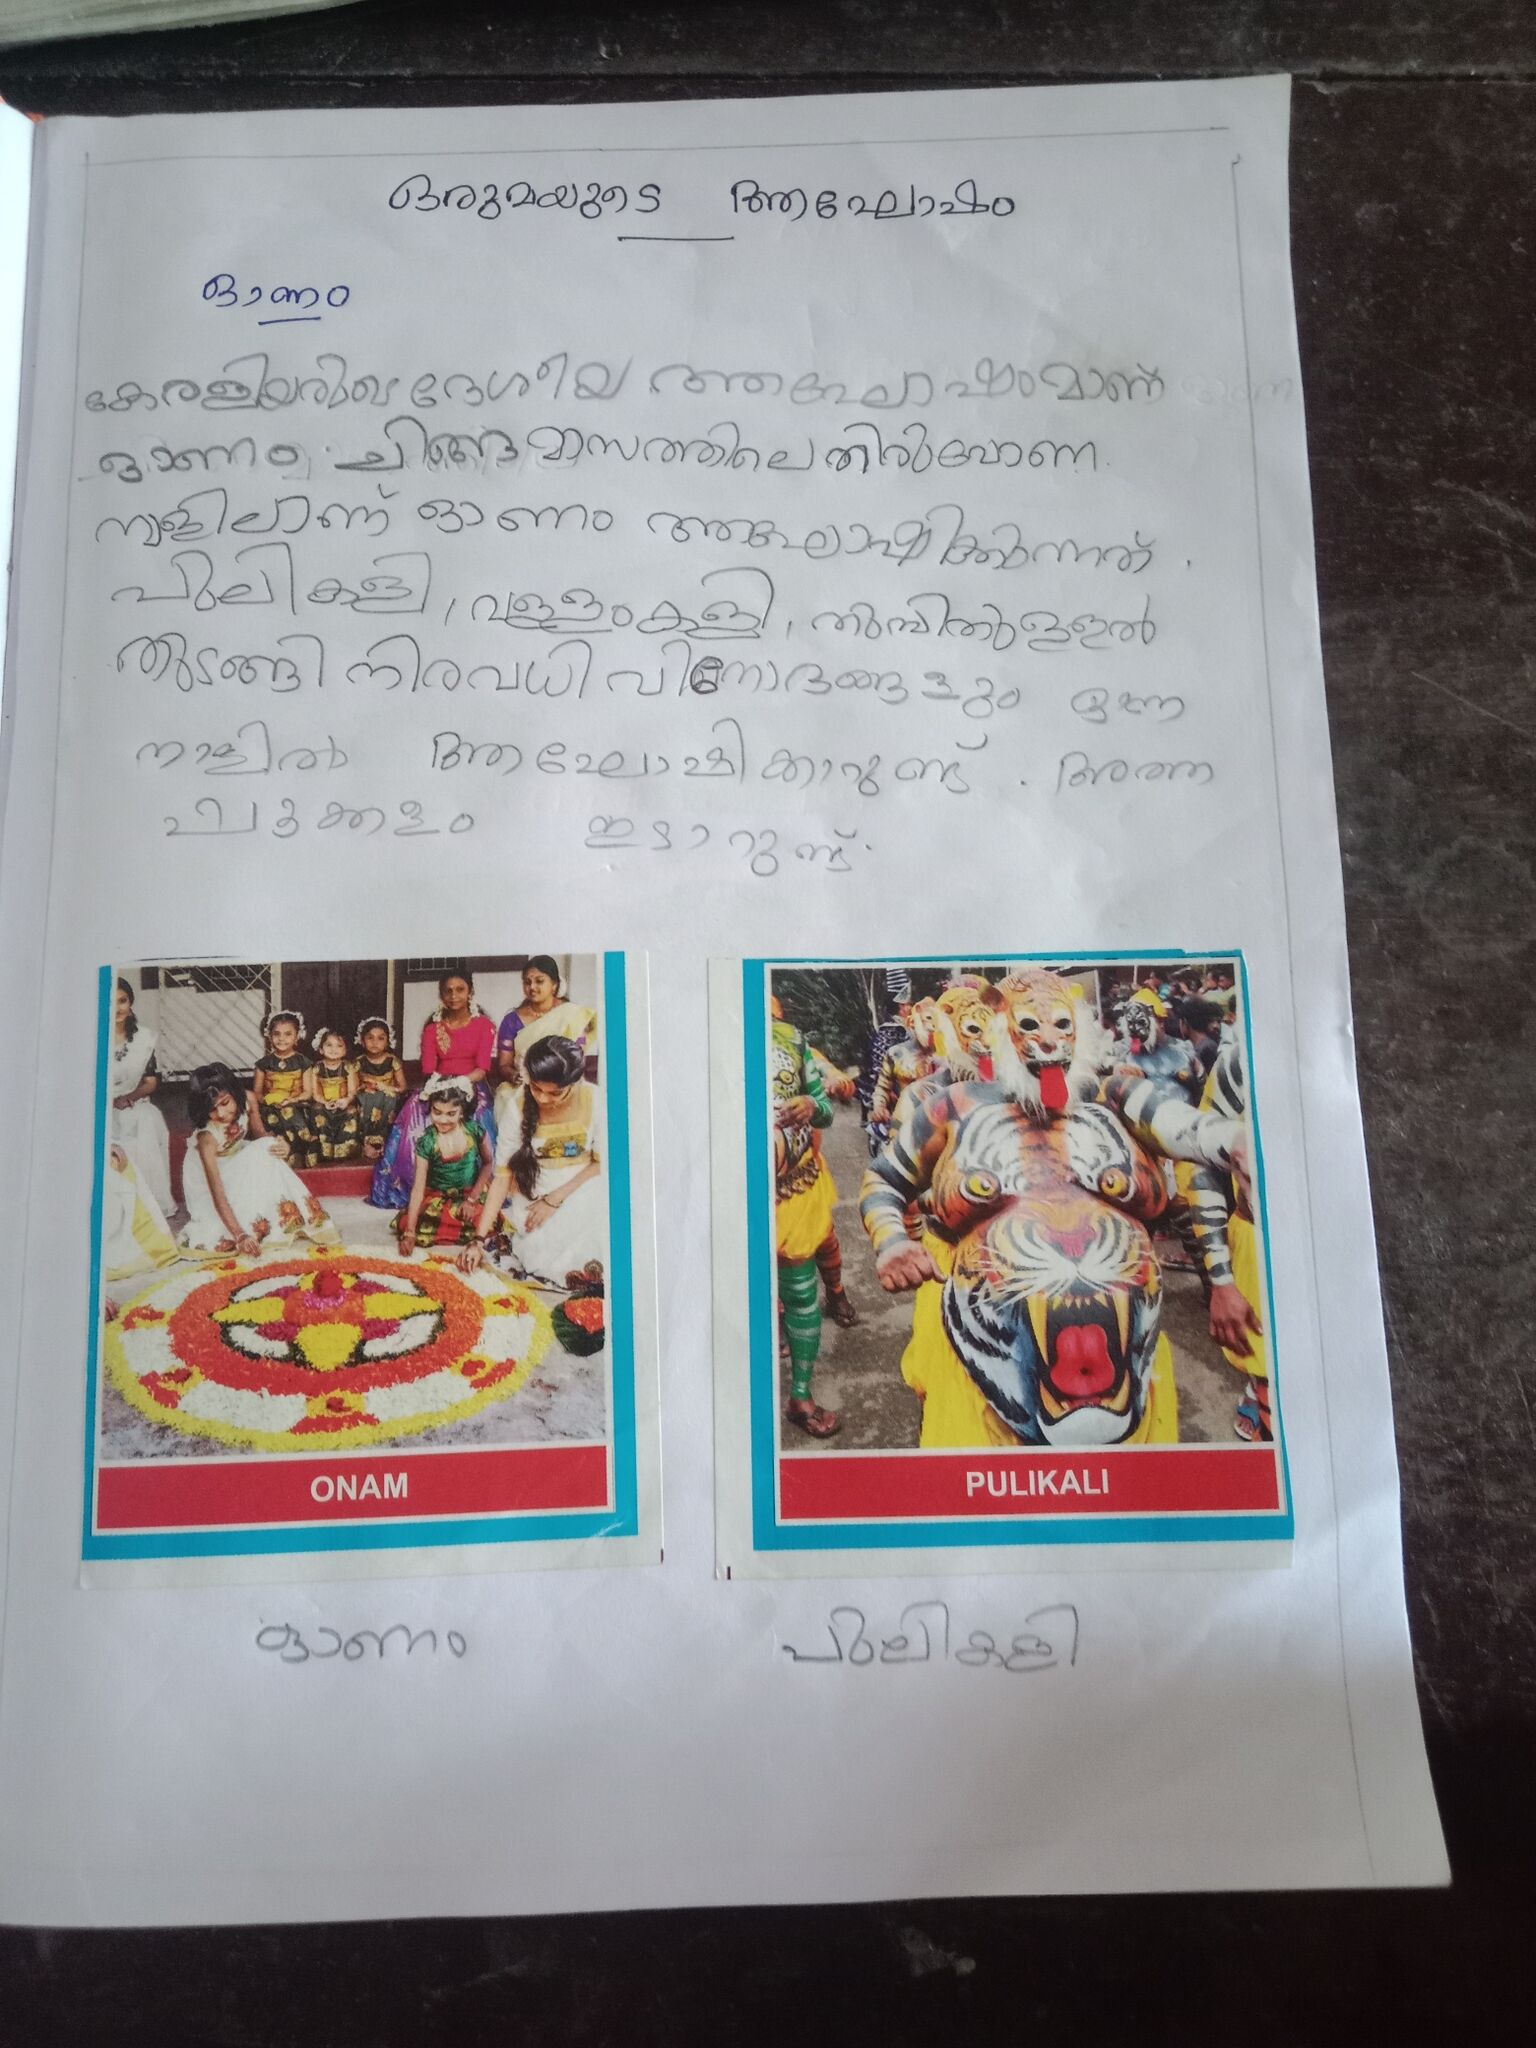 ഒരുമയുടെ ആഘോഷം
ഓണം
കേരളിയരുടെ ദേശീയ ആഘോഷംമാണ്
ഓണം. ചിങ്ങമാസത്തിലെ തിരുവോണ
നാളിലാണ് ഓണം ആഘോഷിക്കുന്നത്.
പുലികളി, വള്ളംകളി, തുമ്പിതുള്ളൽ
തുടങ്ങി നിരവധി വിനോദങ്ങളും ഈ
നാളിൽ ആഘോഷിക്കാറുണ്ട്. അത്ത
പൂക്കളം ഇടാറുണ്ട്.
ONAM PULIKALI
ഓണം പുലികളി